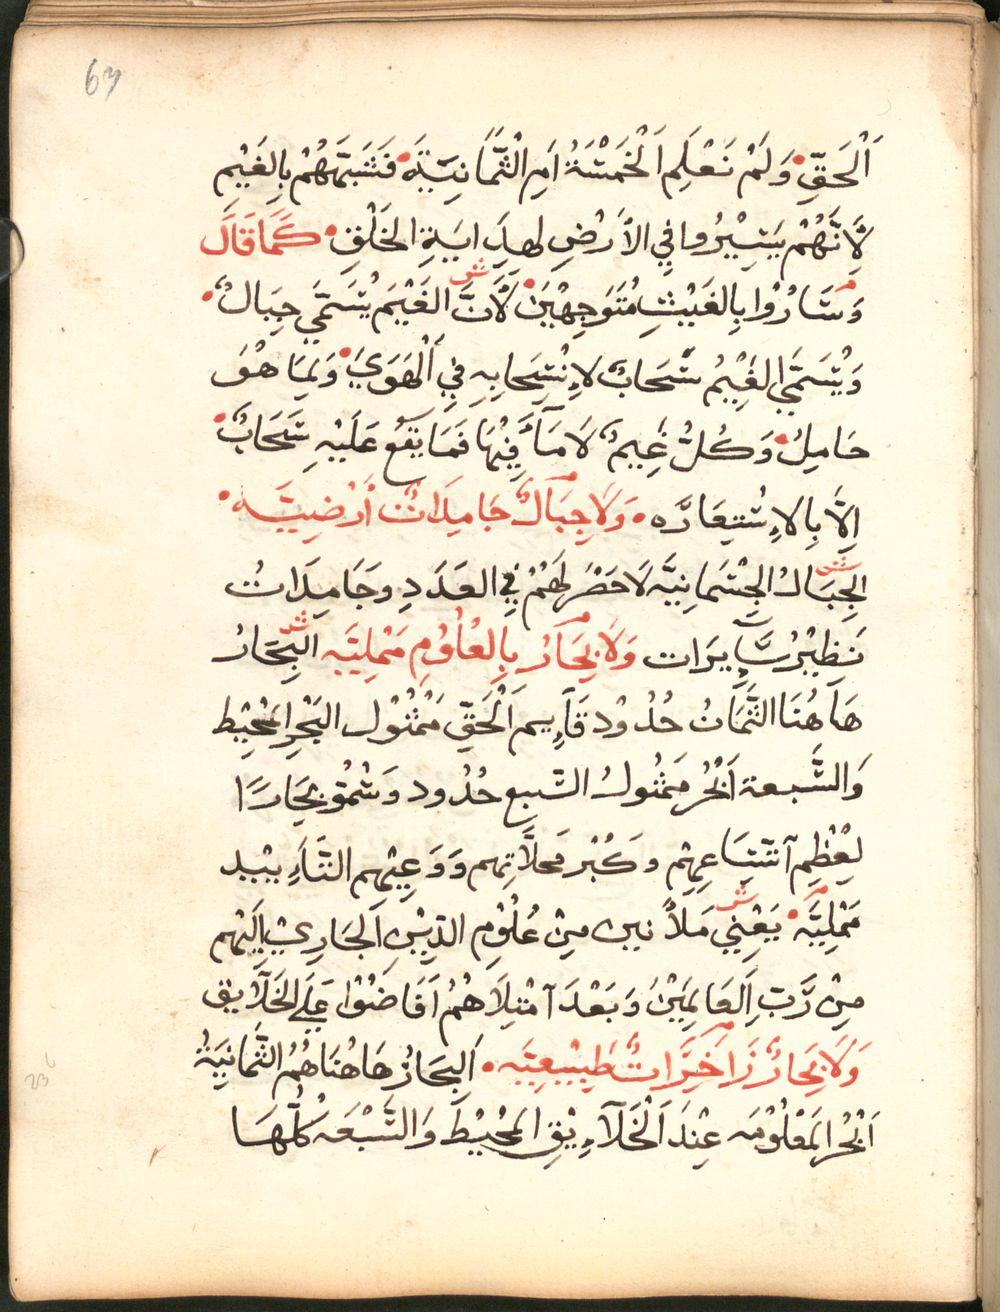 63
اَلْحَقِّ وَلَمْ نَعْلَمِ اَلْخَمْسَةُ امِ الثَّمَانِيَّةَ فَشَبَّهَهُمْ بِالغَيْمِ
لَأَنَّهُمْ يَسِيْرُوا فِي الأَرْضِ لِهِدَايَةِ الخَلْقِ كَمَا قَالَ
وَسَارُوْا بِالغَيْثِ مُتَوَجِهْيْنَ ش لَأَنَّ الغَيْمَ يُسَمَّي جِبَالٌ
وَيُسَمَّي الغَيْمُ سَحَابٌ لاِنْسِحَابِهِ فِي اَلْهَوَيَ وَلِمَا هُوَ
حَامِلُ وَكُلُّ غَيمٌ لَا مَآءَ فِيْهَا فَمَا يَقَعُ عَلَيْهِ سَحَابٌ
اِلَّا بِالاِسْتِعَارَه وَلَا جِبَالٌ جَامِدَاتٌ أَرْضِيَّه
ش الجِبَالُ الجِسْمَانِيَّه لَا حَصْرَ لَهُمْ فِي العَدَدِ وَجَامِدَاتُ
نَظِيْرُ سَآيِرَات وَلَا بِحَارٌ بِالعُلُوْمِ مَمْلِيَّه ش البِحَارُ
هَاهُنَا الثَّمَانُ حُدُوْد قَآيِم اَلْحَقِّ مَمْثُوْل البَحْرِ المُحْيِط
وَالسَّبعة اَبْحُر مَمْثُولُ السَّبع حُدُود وَسُمُّوْ بِحَارًا
لِعْظِمِ آتِّسَاعِهِم وكُبْر محلَّاتِهم وَوَعِيْهِم التَّاَيِيْد
مَمْلِيَّه ش يَعْنِي مَلأَنين مِنْ عُلُوْمِ الدِيْنِ اَلجَارِيْ اِلَيْهِم
مِنْ رَّبِ اَلعَالَمِيْنْ وَبَعْدَ آمْتِلَاهُمُ اَفَاضُوْا عَلَى الخَلَآيِق
وَلَا بِحَارٌ زَاخِرَاتٌ طَبِيْعِيَّه اَلبِحَارُ هَاهُنَا هُمُ الثَّمَانِيَةُ
اَبْحُر المَعْلُوْمَه عِنْدَ اَلْخَلَآيِقِ المُحْيِطِ وَالسَّبْعَه كُلّهَا